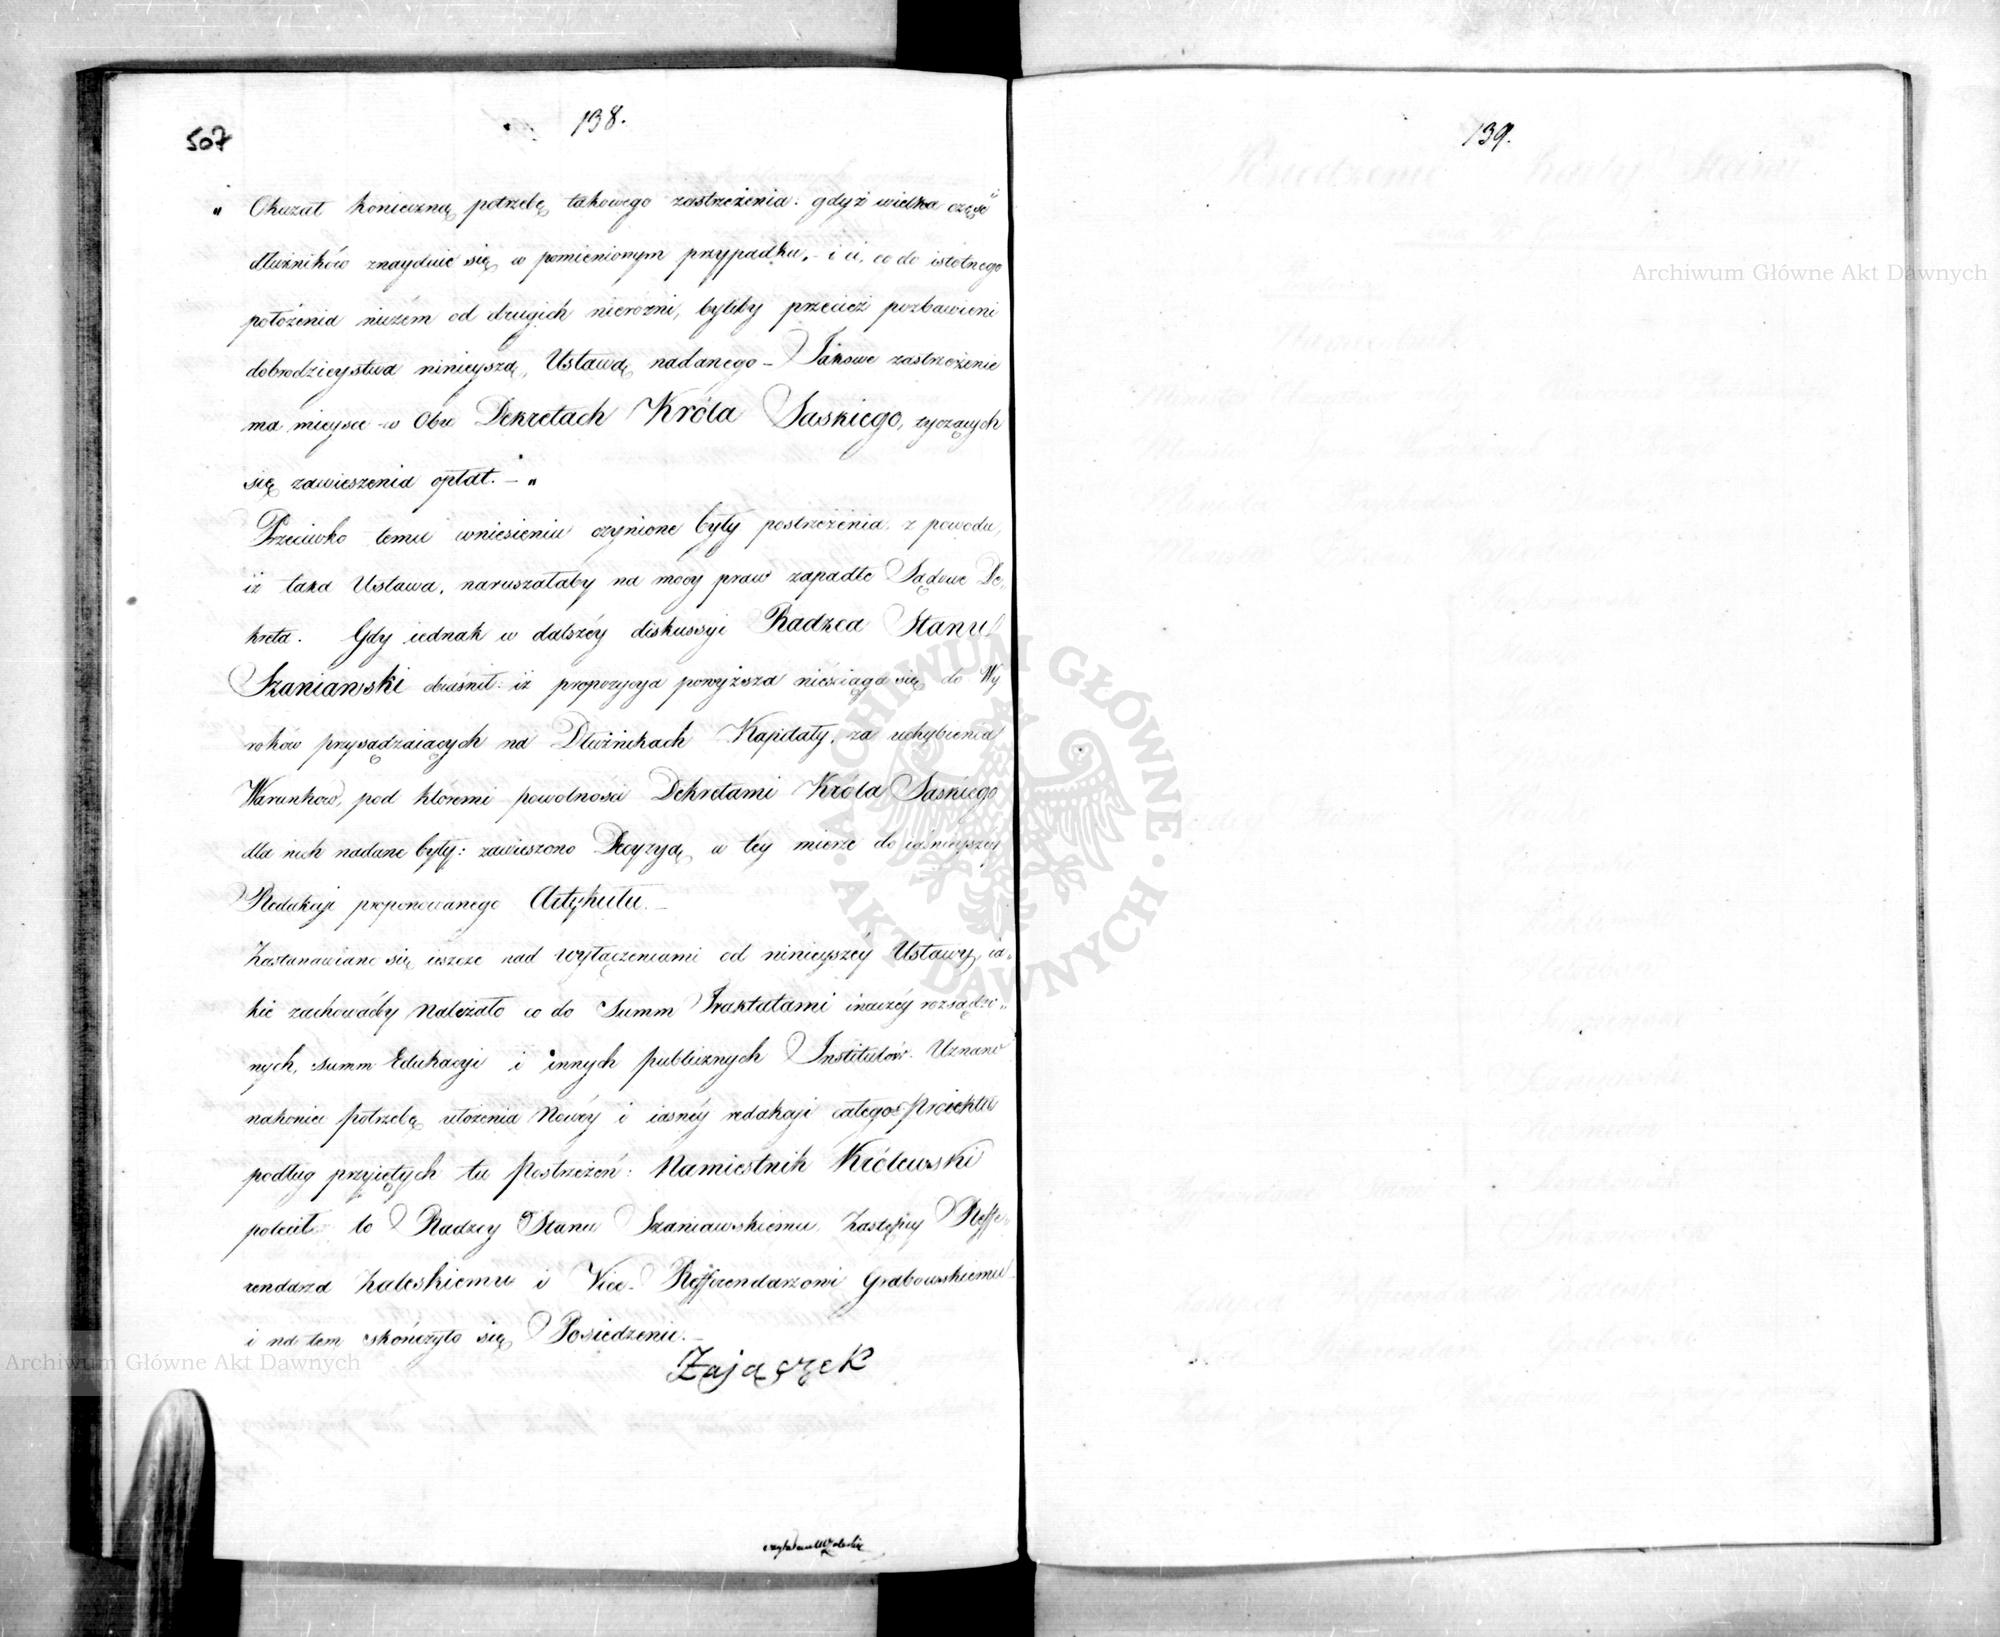 507
138.
„ Okazał konieczną potrzebę takowego zastrzeżenia: gdyż wielka częsć
dłużników znayduie się w pomienionym przypadku, – i ci, co do istotnego
położenia niczém od drugich nieróżni, byliby przecież pozbawieni
dobrodzieystwa ninieyszą Ustawą nadanego – Takowe zastrzeżenie
ma mieysce w Obu Dekretach Króla Saskiego, tyczących
się zawieszenia opłat. – „
Przeciwko temu wniesieniu czynione były postrzeżenia z powodu,
iż taka Ustawa, naruszałaby na mocy praw zapadłe Sądowe De„
kreta. Gdy iednak w dalszéy diskussyi Radzca Stanu
Szaniawski obiaśnił: iż propozycya powyższa nieściąga się do Wy
roków przysądzaiących na Dłużnikach Kapitały, za uchybienia
Warunków, pod któremi powolności Dekretami Króla Saskiego
dla nich nadane były: zawieszono Decyzyą w tey mierze do iaśnieyszey
Redakcji proponowanego Artykułu. –
Zastanawiano się ieszcze nad wyłączeniami od ninieyszéy Ustawy, ia„
kie zachowaćby należało co do Summ Traktatami inaczéy rozsądzo„
nych, summ Edukacyi i innych publicznych Institutów. Uznano
nakoniec potrzebę ułożenia Nowéy i iasnéy redakcji całego Proiektu
podług przyiętych tu Postrzeżeń: Namiestnik Królewski
polecił to Radzcy Stanu Szaniawskiemu, Zastępcy Reffe„
rendarza Zaleskiemu i Vice-Refferendarzowi Grabowskiemu
i na tem skończyło się Posiedzenie. –
Zajączek
139.
Posiedzenie Rady Stanu
Archiwum Główne Akt Dawnych
Archiwum Główne Akt Dawnych
ARCHIWUM GŁÓWNE · AKT DAWNYCH ·